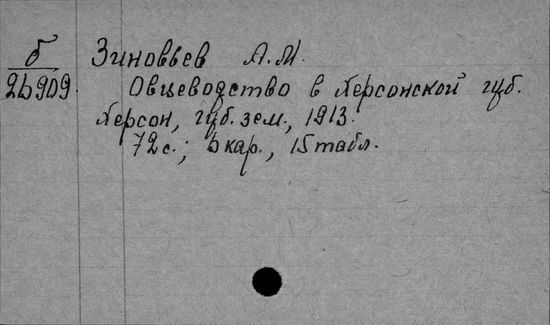 б
26909
Зиновьев А.М.
Овцеводство в Херсонской губ.
Херсон, губ. зем., 1913.
72с.; 6 кар., 15 табл.